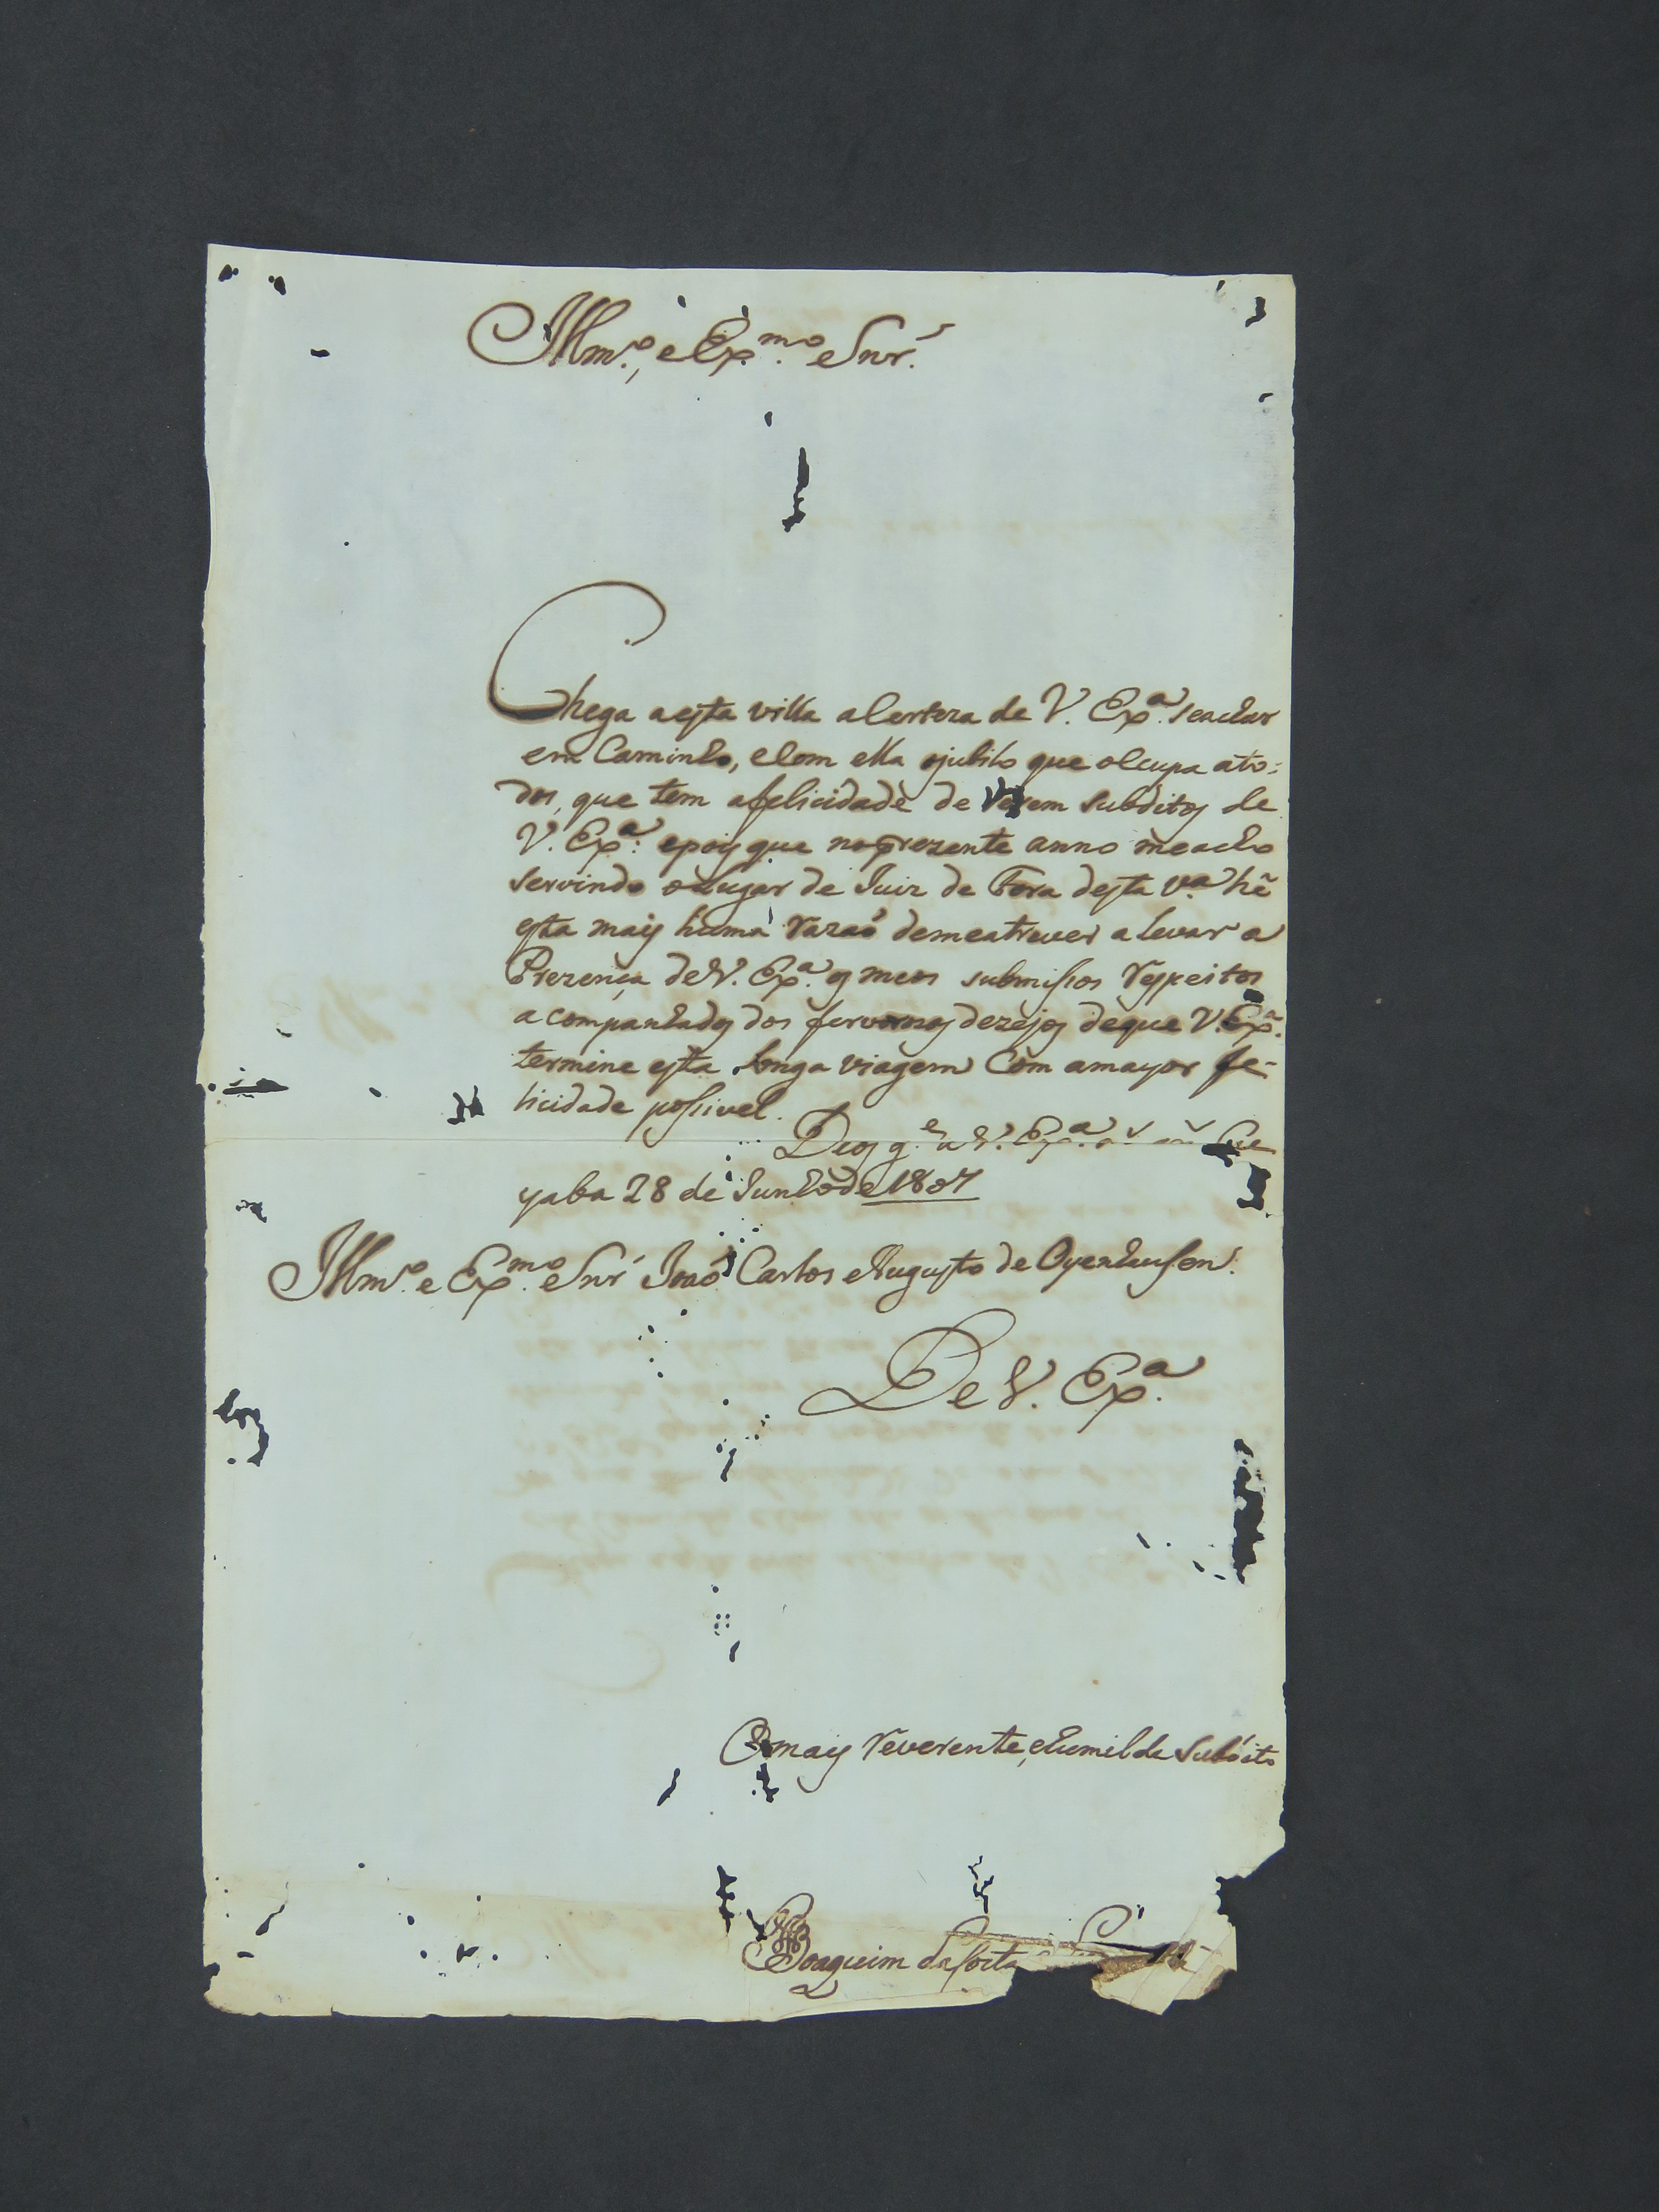 Illmo., e Exmo. Snr.
Chega a esta villa a Certeza de V. Exa. se achar
em Caminho, e Com ella o jubilo que occupa a to=
dos, que tem a felicidade de serem Subditos de
V. Exa.: e pois que no prezente anno me acho
servindo o lugar de Juiz de Fora desta Va. hé
esta mais huma razaó de me atrever a levar a
Prezença de V. Exa. os meos submissos respeitos
acompanhados dos fervorosos dezejos de que V. Exa.
termine esta longa viagem Com a mayor fe-
licidade possivel.
Deos ge. a V. Exa. Cu
yaba 28 de Junho de 1807
Illmo. e Exmo. Snr. Joaó Carlos Augusto de Oyenhausen.
De V. Exa.
O mais reverente, e humilde Subdito
Joaquim da Costa